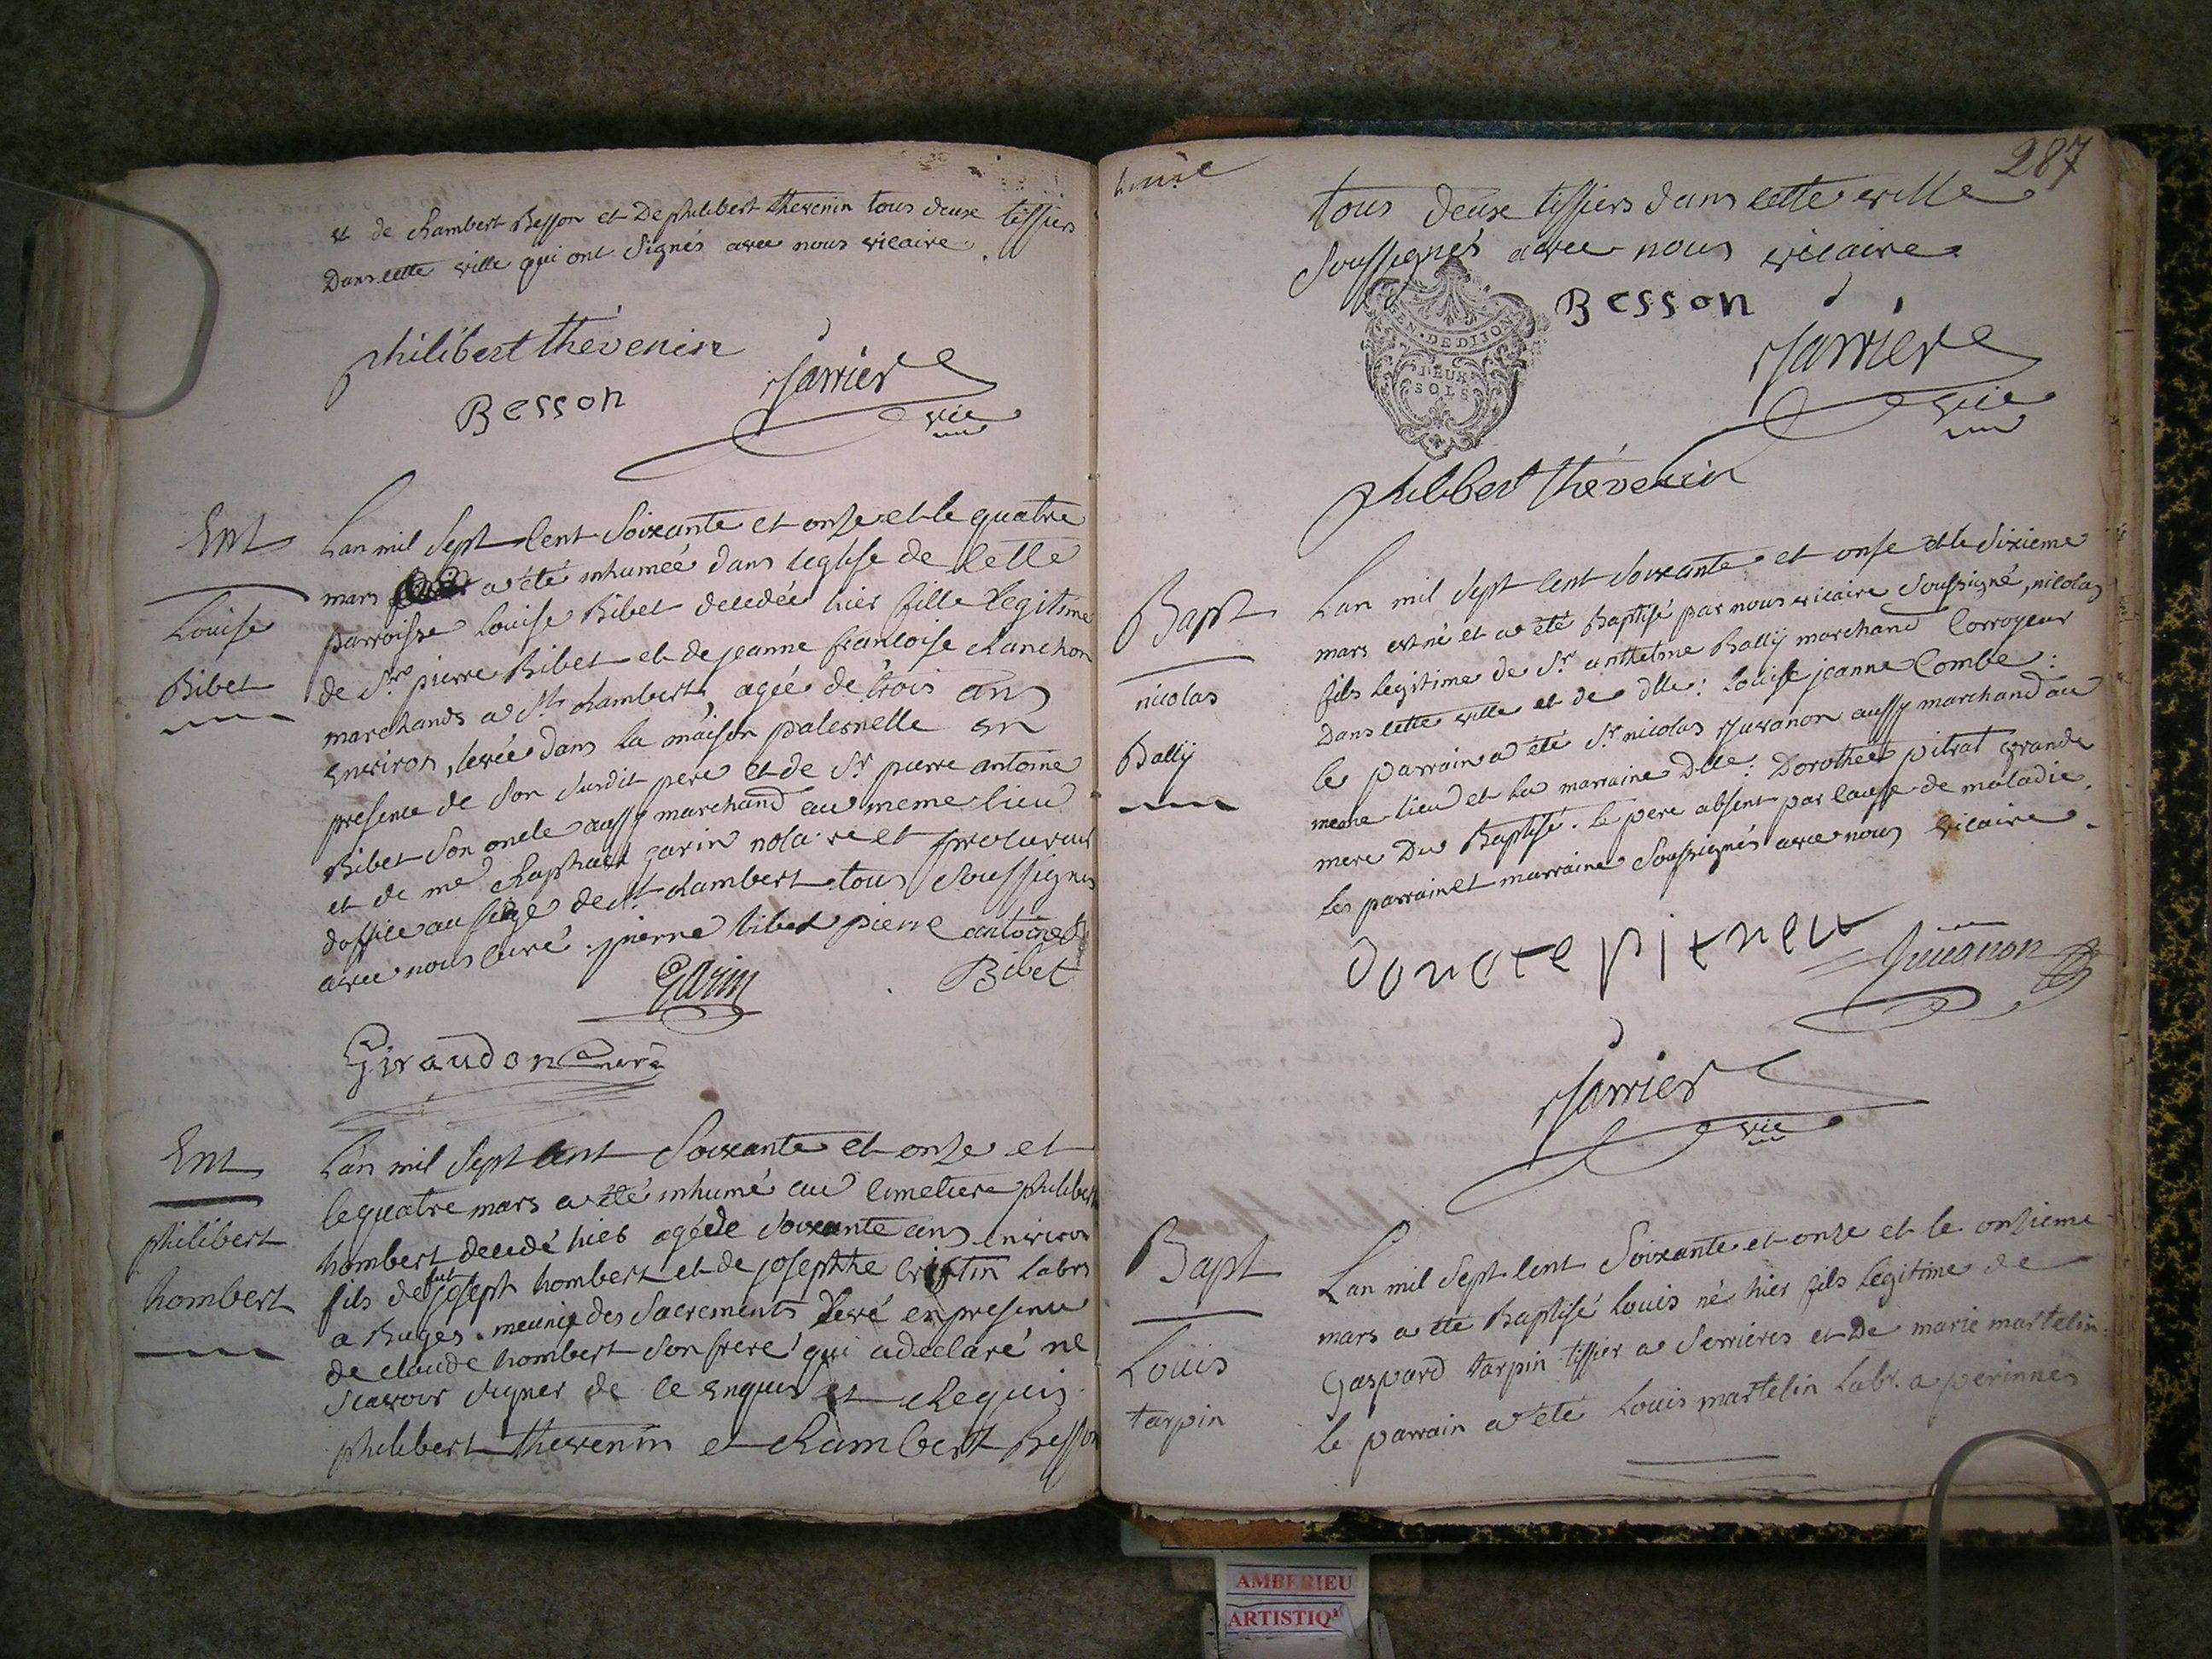 et de Rambert Besson et De philibert thevenin tous deux tissiers
Dans cette ville qui ont signés avec nous vicaire.
philibert thévenin
Besson
Jarrier
vic
Ent
Louise
Bibet
L'an mil sept cent soixante et onze et le quatre
mars a été inhumée dans l'eglise de cette
parroisse Louise Bibet decedée hier fille legitime
de Sre pierre Bibet et de jeanne francoise chanchon
marchands a St rambert, agée de trois ans
environ, levée dans la maison paternelle en
presence de son susdit pere et de Sr pierre antoine
Bibet son oncle aussy marchand au meme lieu
et de me Raphael garin notaire et procureur
d'office au siege de St rambert tous soussignés
avec nous curé. pierre bibet pierre antoine
Bibet
Garin
Giraudon curé
Ent
philibert
hombert
L'an mil sept cent soixante et onze et
le quatre mars a été inhumé au cimetiere philibert
hombert decedé hier agé de soixante ans environ
fils de fut joseph hombert et de josephte cristin labrs
a Buges. meunie des sacrements levé en presence
de claude hombert son frere qui a declaré ne
scavoir signer de ce enquis et Requis
philibert thevenin et Rambert Besson
287
tous deux tissiers dans cette ville
soussignés avec nous vicaire
GEN. DE DIJON
DEUX
SOLS
Besson
Jarrier
vic
philibert thévenin
Bapt
nicolas
Bally
L'an mil sept cent soixante et onse et le sixieme
mars est né et a été Baptisé par nous vicaire soussigné, nicolas
fils legitime de Sr anthelme Bally marchand corroyeur
Dans cette ville et de dlle: Louise jeanne Combe:
le parrain a été Sr nicolas Juvanon aussy marchand au
meme lieu et la marraine Dlle: Dorothée pitrat grande
mere Du Baptisé. le pere absent par cause de maladie.
les parrain et marraine soussignés avec nous vicaire.
Juvanon
Jarrier
vic
Bapt
Louis
tarpin
L'an mil sept cent soixante et onze et le onzieme
mars a été Baptisé Louis né hier fils legitime de
Gaspard tarpin tissier a Serrieres et De marie martelin:
le parrain a été Louis martelin labr. a perinnes
AMBERIEU
ARTISTIQ